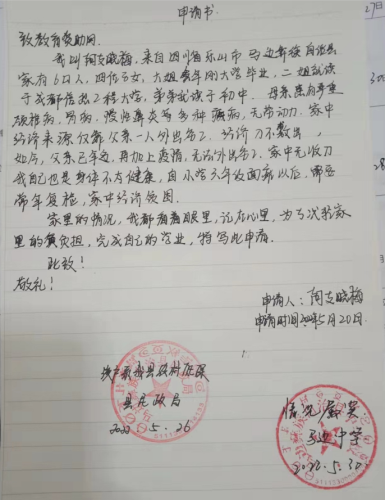 申请书
致教育资助网:
我叫阿支晓梅,来自四川省乐山市马边彝族自治县
家有6口人,四位子女,大姐今年刚大学毕业,二姐就读
于成都信息工程大学,弟弟就读于初中。母亲患有严重
颈椎病,胃病,慢性鼻炎等多种疾病,无劳动力。家中
经济来源仅靠父亲一人外出务工,经济入不敷出,
如今,父亲已年迈,再加上疫情,无法外出务工,家中无收入
我自己也是身体不太健康,自小学六年级面瘫以后,需要
常年复检,家中经济贫困。
家里的情况,我都看着眼里,记在心里,为了减轻家
里的负担,完成自己的学业,特写此申请。
此致!
敬礼!
申请人:阿支晓梅
申请时间2022年5月20日
农村低保
县民政局
2022.5.26
情况属实
马边中学
2022.5.30